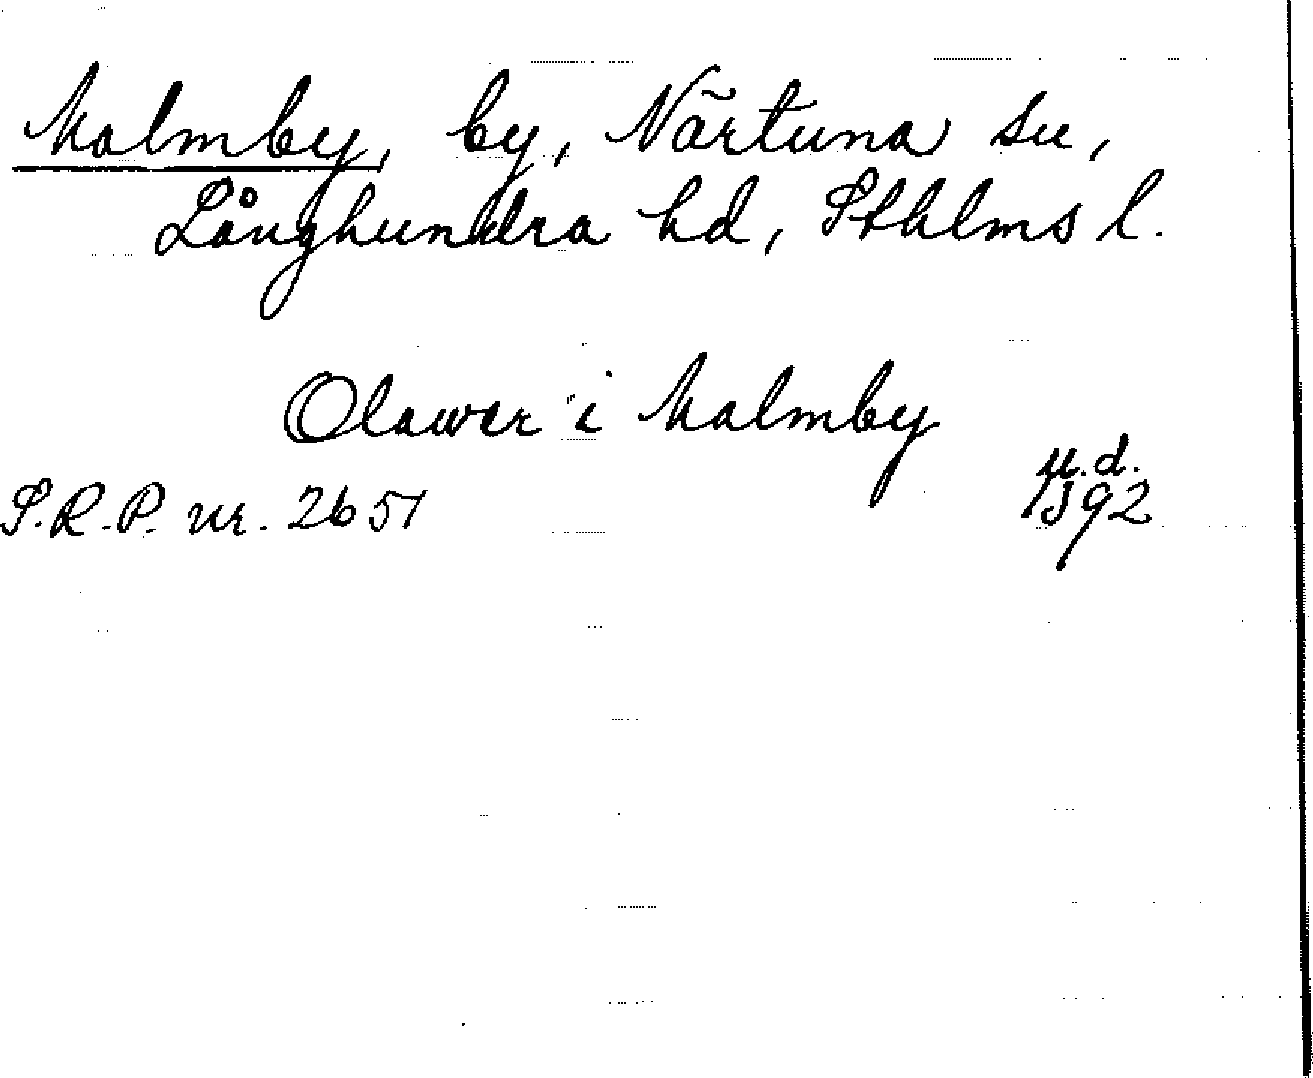 Malmby, by, Närtuna sn,
Långhundra hd, Sthlms l.
Olawer i Malmby
u.d.
S.R.P. nr. 2651 1392